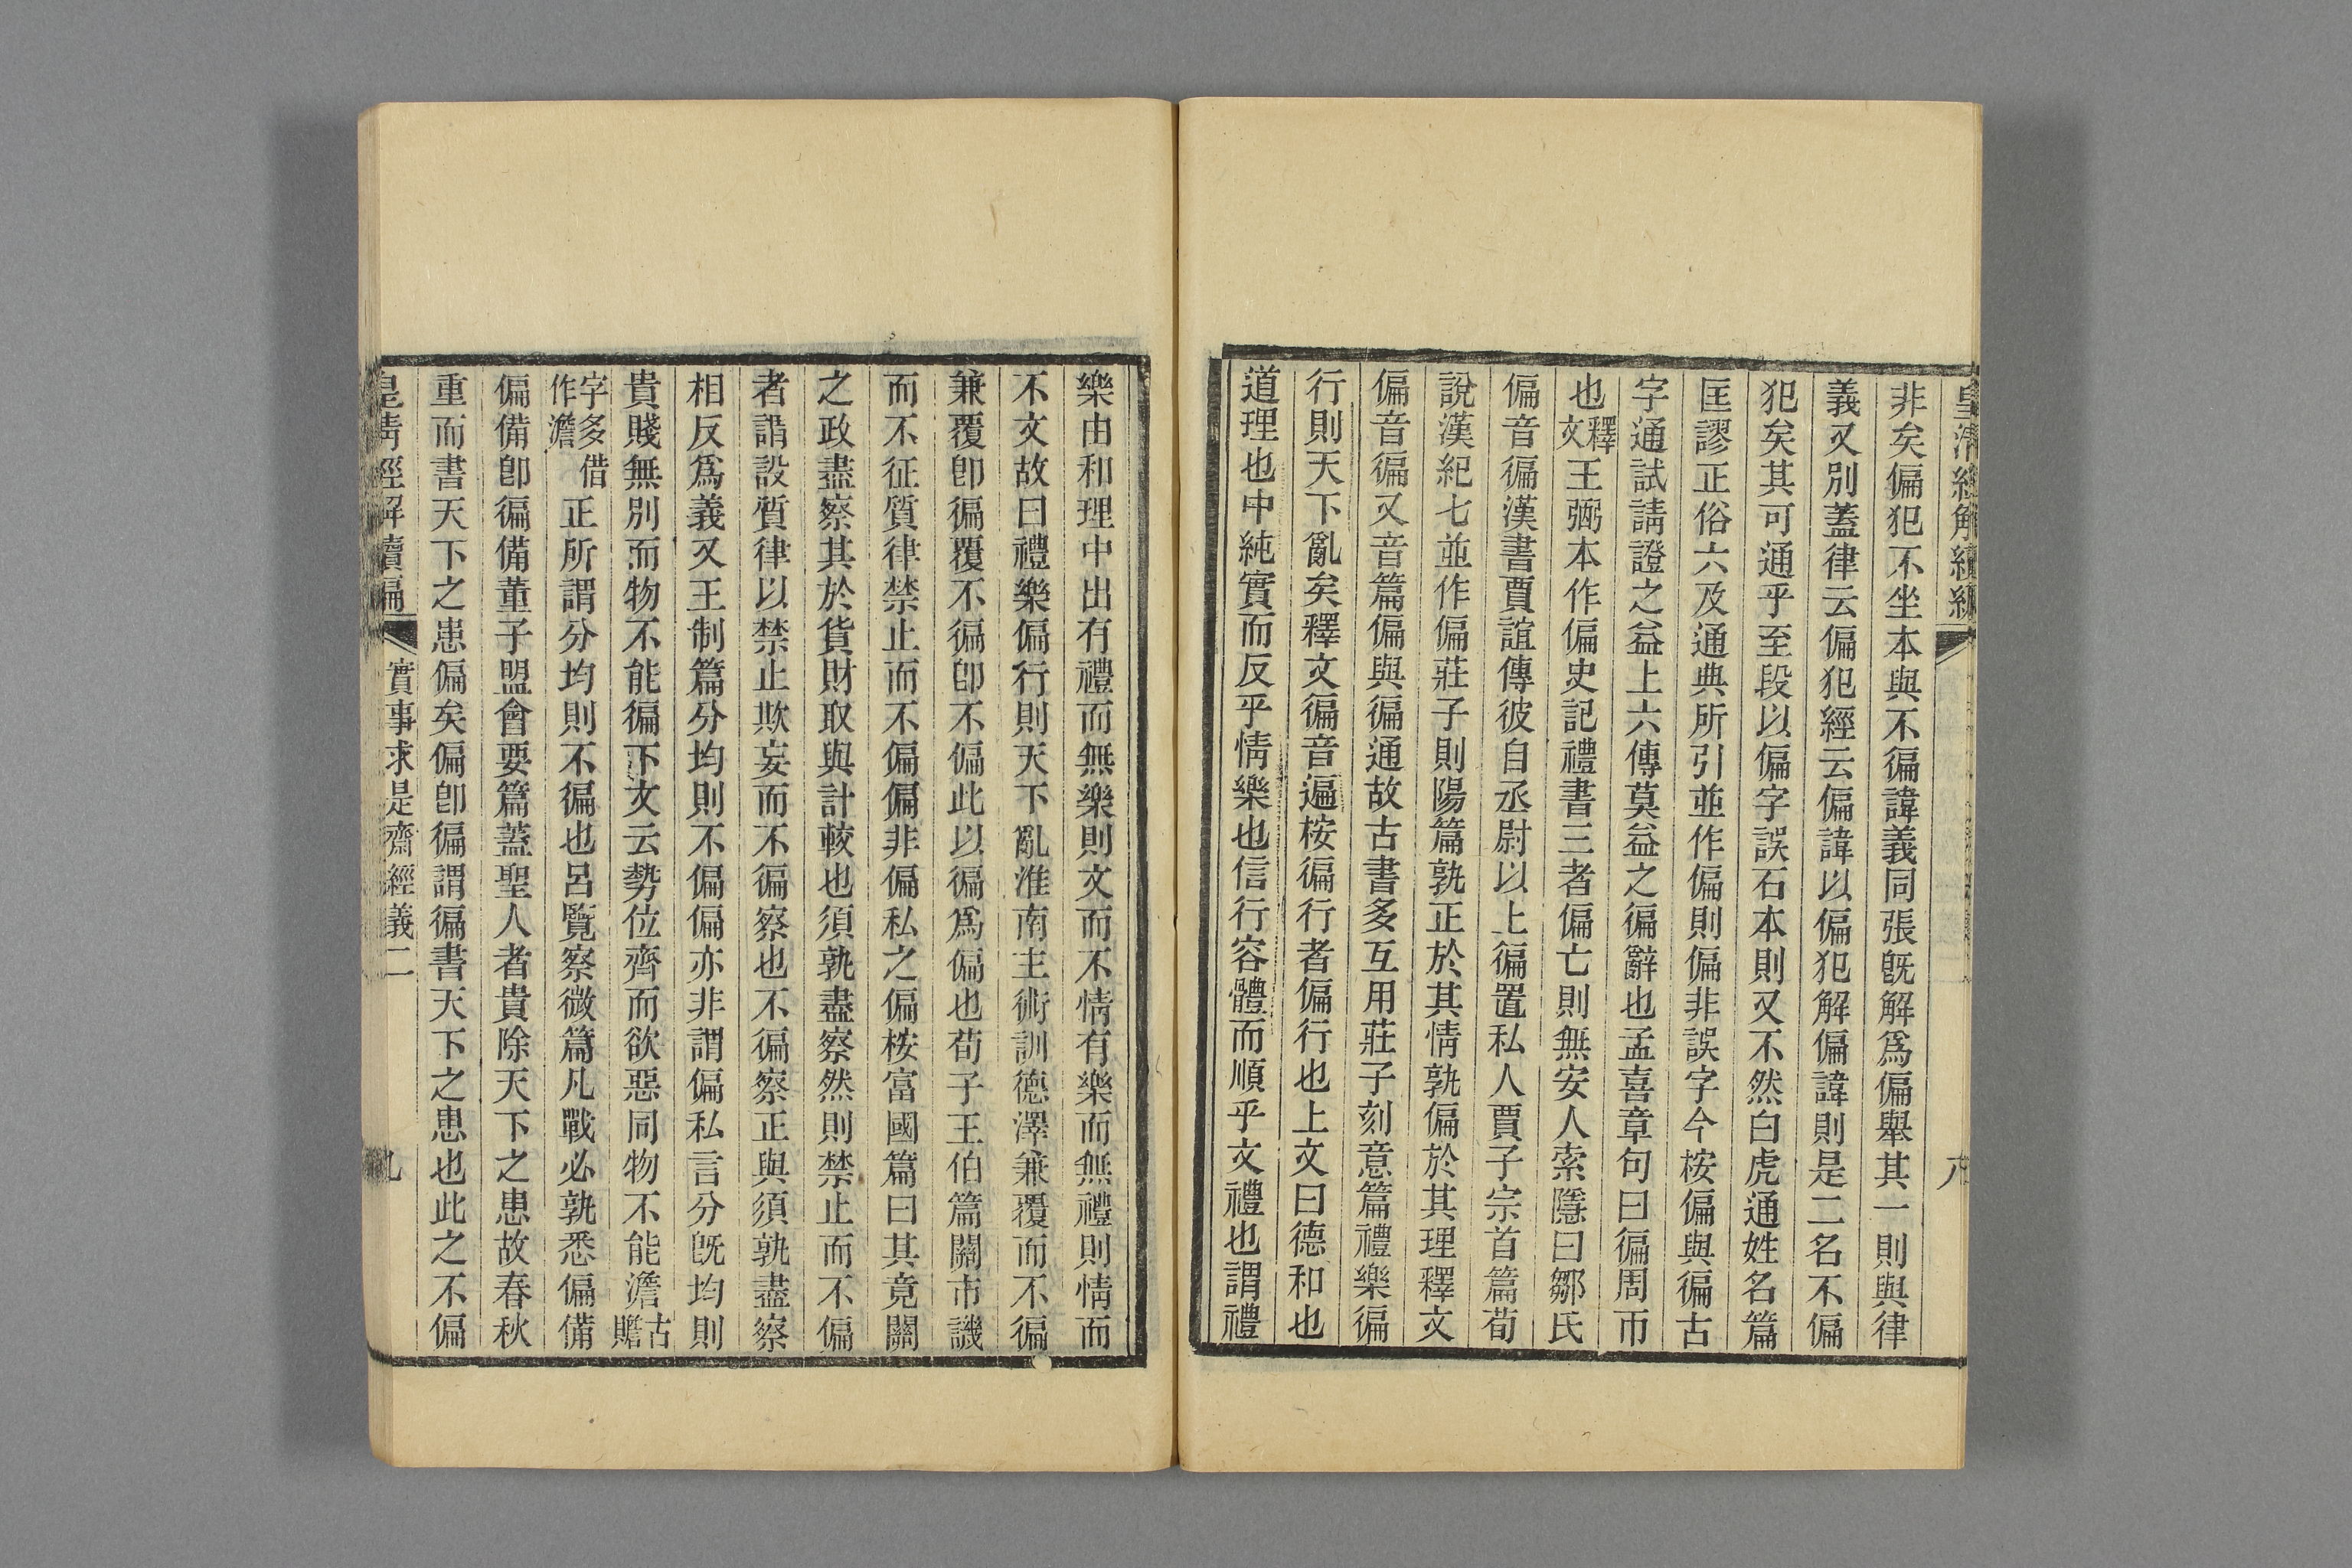 皇清經解續編
八
非矣偏犯不坐本與不徧諱義同張旣解爲偏舉其一則與律
義又別蓋律云偏犯經云偏諱以偏犯解偏諱則是二名不偏
犯矣其可通乎至段以偏字誤石本則又不然白虎通姓名篇
匡謬正俗六及通典所引並作偏則偏非誤字今桉偏與徧古
字通試請證之益上六傳莫益之徧辭也孟喜章句曰徧周帀
也釋文王弼本作偏史記禮書三者偏亡則無安人索隱曰鄒氏
偏音徧漢書賈誼傳彼自丞尉以上徧置私人賈子宗首篇荀
說漢紀七並作偏莊子則陽篇孰正於其情孰偏於其理釋文
偏音徧又音篇偏與徧通故古書多互用莊子刻意篇禮樂徧
行則天下亂矣釋文徧音遍桉徧行者偏行也上文曰德和也
道理也中純實而反乎情樂也信行容體而順乎文禮也謂禮
樂由和理中出有禮而無樂則文而不情有樂而無禮則情而
不文故曰禮樂偏行則天下亂淮南主術訓德澤兼覆而不徧
兼覆卽徧覆不徧卽不偏此以徧爲偏也荀子王伯篇關市譏
而不征質律禁止而不偏偏非偏私之偏桉富國篇曰其竟關
之政盡察其於貨財取與計較也須孰盡察然則禁止而不偏
者謂設質律以禁止欺妄而不徧察也不徧察正與須孰盡察
相反爲義又王制篇分均則不偏偏亦非謂偏私言分旣均則
貴賤無別而物不能徧下文云勢位齊而欲惡同物不能澹古贍
字多借作澹正所謂分均則不徧也呂覽察微篇凡戰必孰悉偏備
偏備卽徧備董子盟會要篇蓋聖人者貴除天下之患故春秋
重而書天下之患偏矣偏卽徧謂徧書天下之患也此之不偏
皇清經解續編
實事求是齋經義二
九